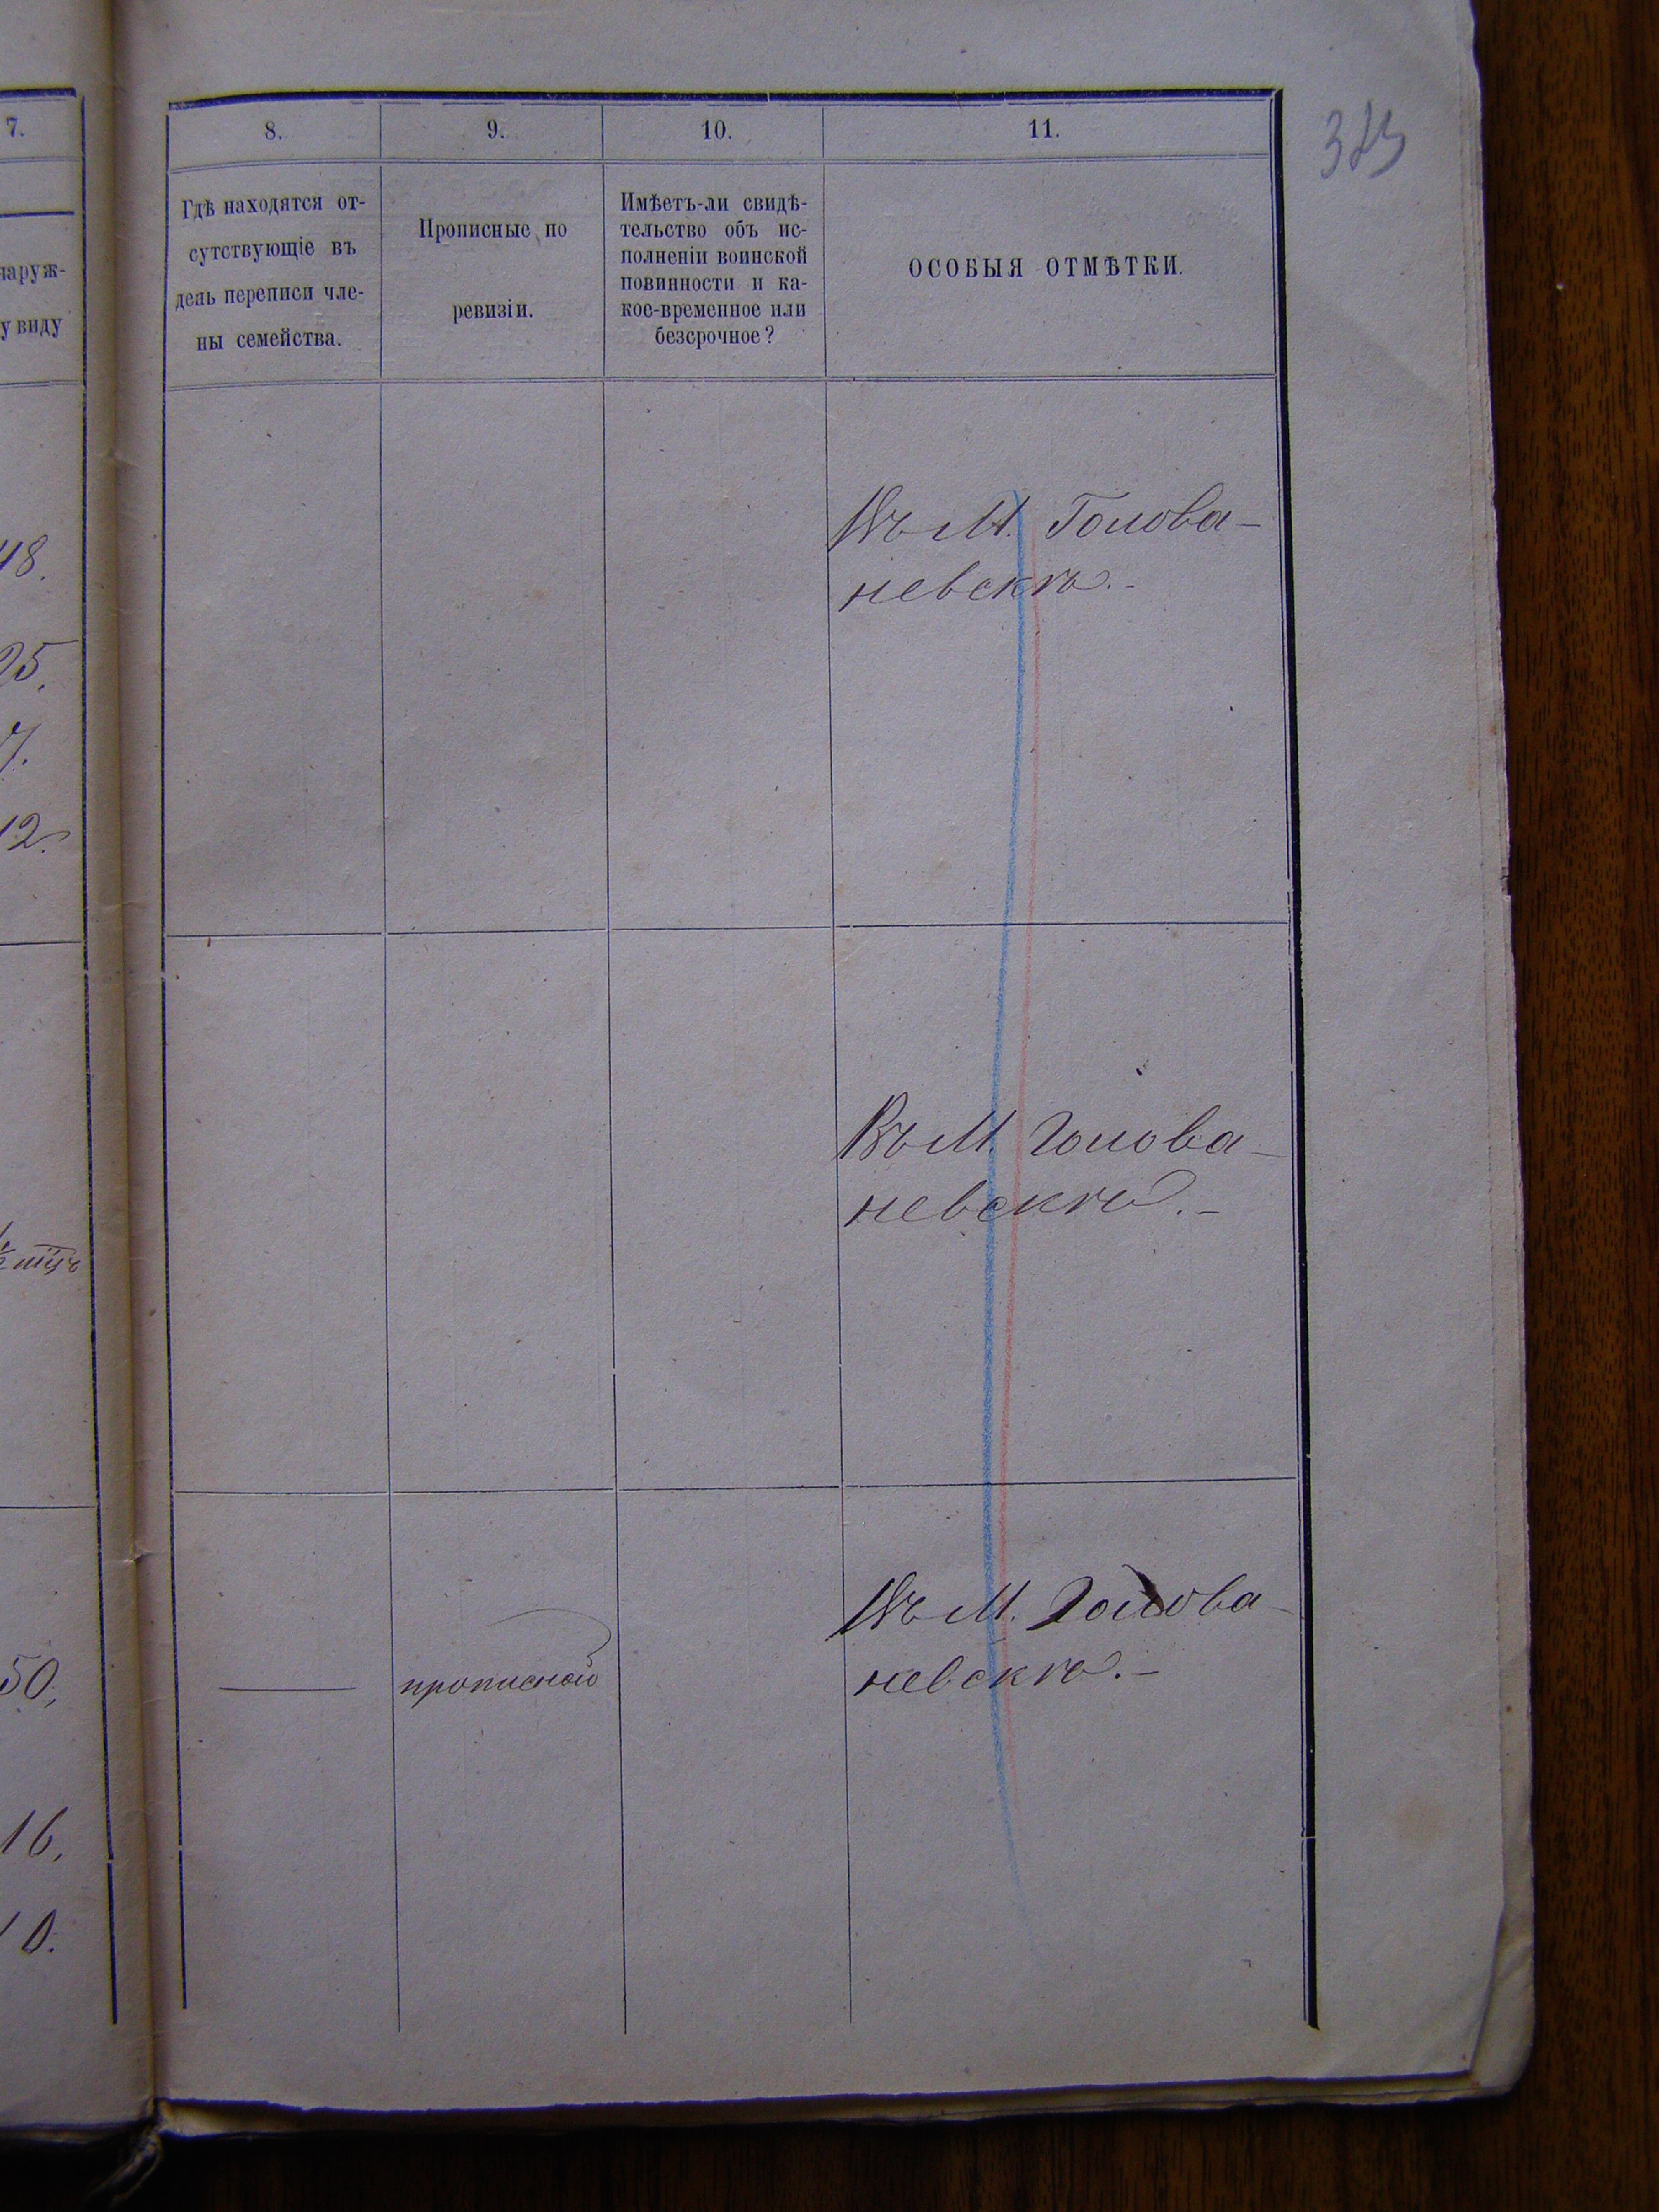 7.
8.
9.
10.
11.
наруж-
у виду
Гдѣ находятся от-
сутствующіе въ
день переписи чле-
ны семейства.
Прописные по
ревизіи.
Имѣетъ-ли свидѣ-
тельство объ ис-
полненіи воинской
повинности и ка-
кое-временное или
безсрочное?
ОСОБЫЯ ОТМѢТКИ.
48.
25.
7.
12.
Въ М. Голова-
невскѣ.-
Въ М. Голова-
невскѣ.-
50,
16,
10.
прописной
Въ М. Голова-
невскѣ.-